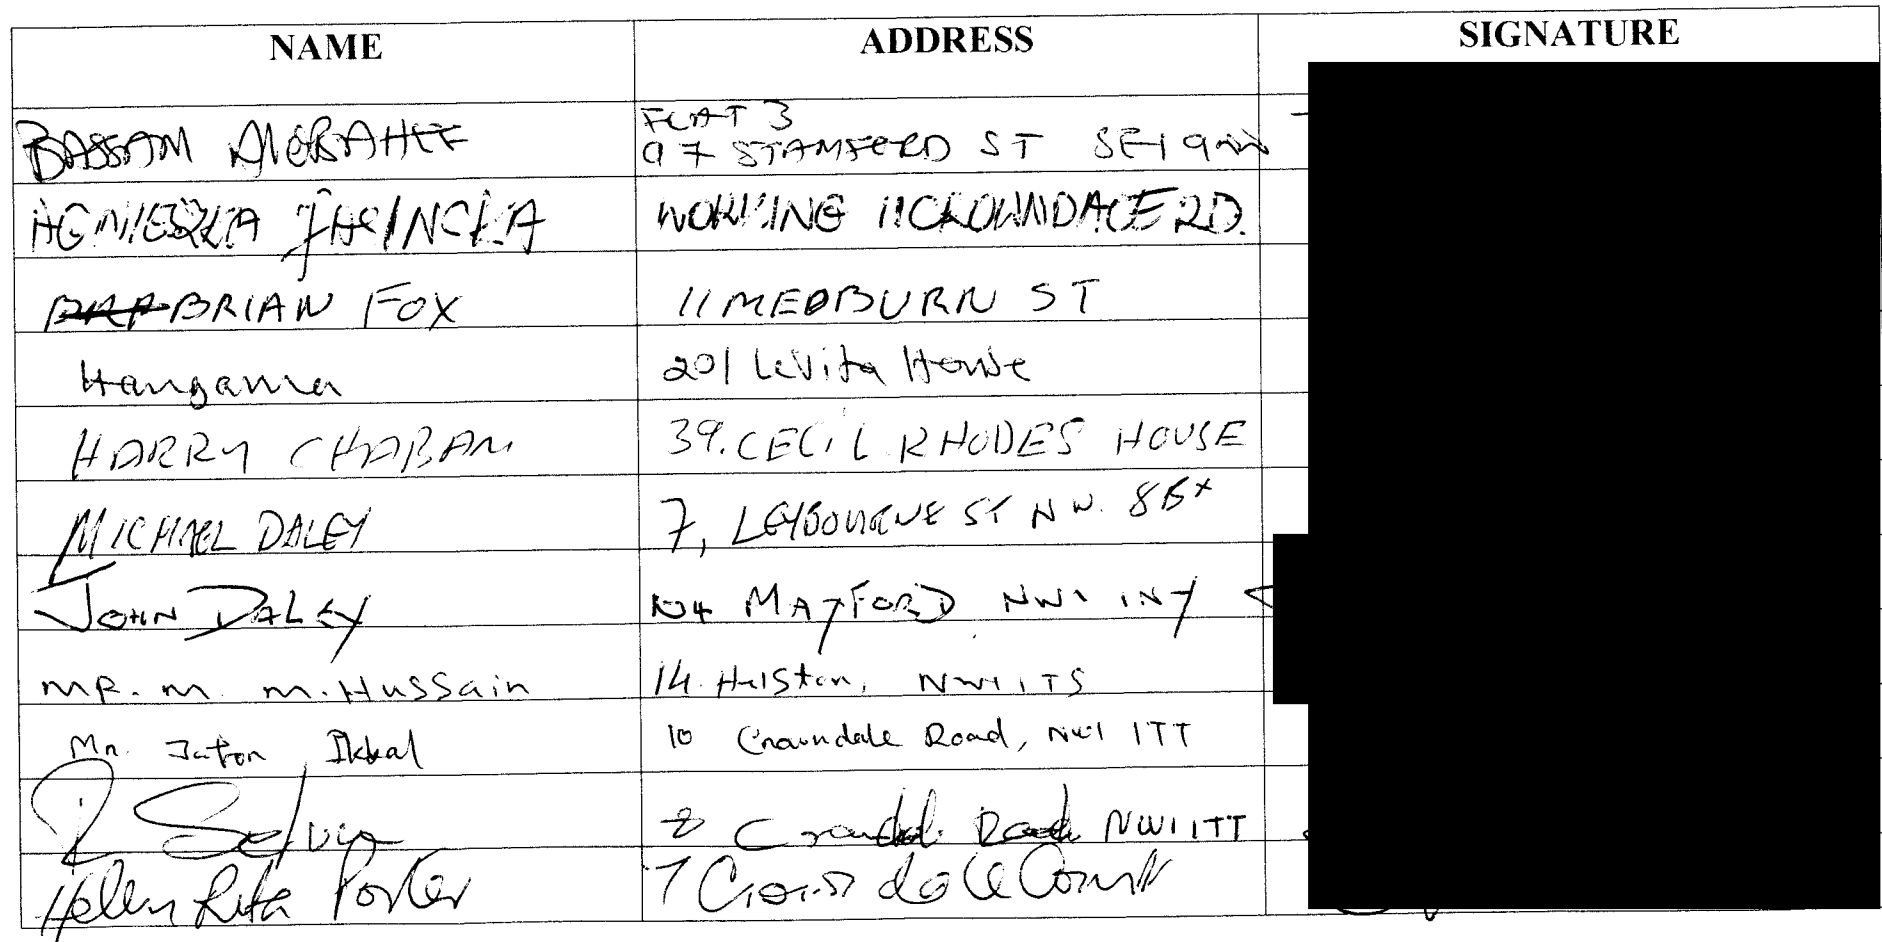 NAME ADDRESS SIGNATURE
FLAT 3
BASSAM 97 STAMFORD ST SE1 9
AGNIESZKA WORKING 11 CROWNDALE RD.
BRIAN FOX 11 MEDBURN ST
201 Levita House
HARRY 39. CECIL RHODES HOUSE
MICHAEL DALEY 7, LEYBOURNE ST NW. 8
JOHN DALEY 104 MAYFORD NW1 1NY
MR. M. M. Hussain 14 Helston, NW1 1TS
Mr. 10 Crowndale Road, NW1 1TT
Crowndale Road NW1 1TT
Helen Rita Porter 7 Crowndale Court